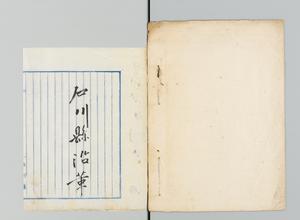 石川縣沿革